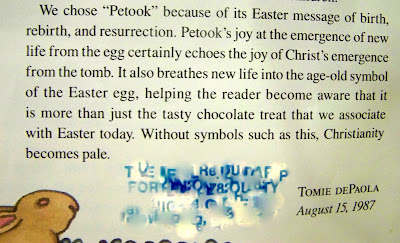 We chose “Petook” because of its Easter message of birth,
rebirth, and resurrection. Petook’s joy at the emergence of new
life from the egg certainly echoes the joy of Christ’s emergence
from the tomb. It also breathes new life into the age-old symbol
of the Easter egg, helping the reader become aware that it
is more than just the tasty chocolate treat that we associate
with Easter today. Without symbols such as this, Christianity
becomes pale.
TOMIE DEPAOLA
August 15, 1987